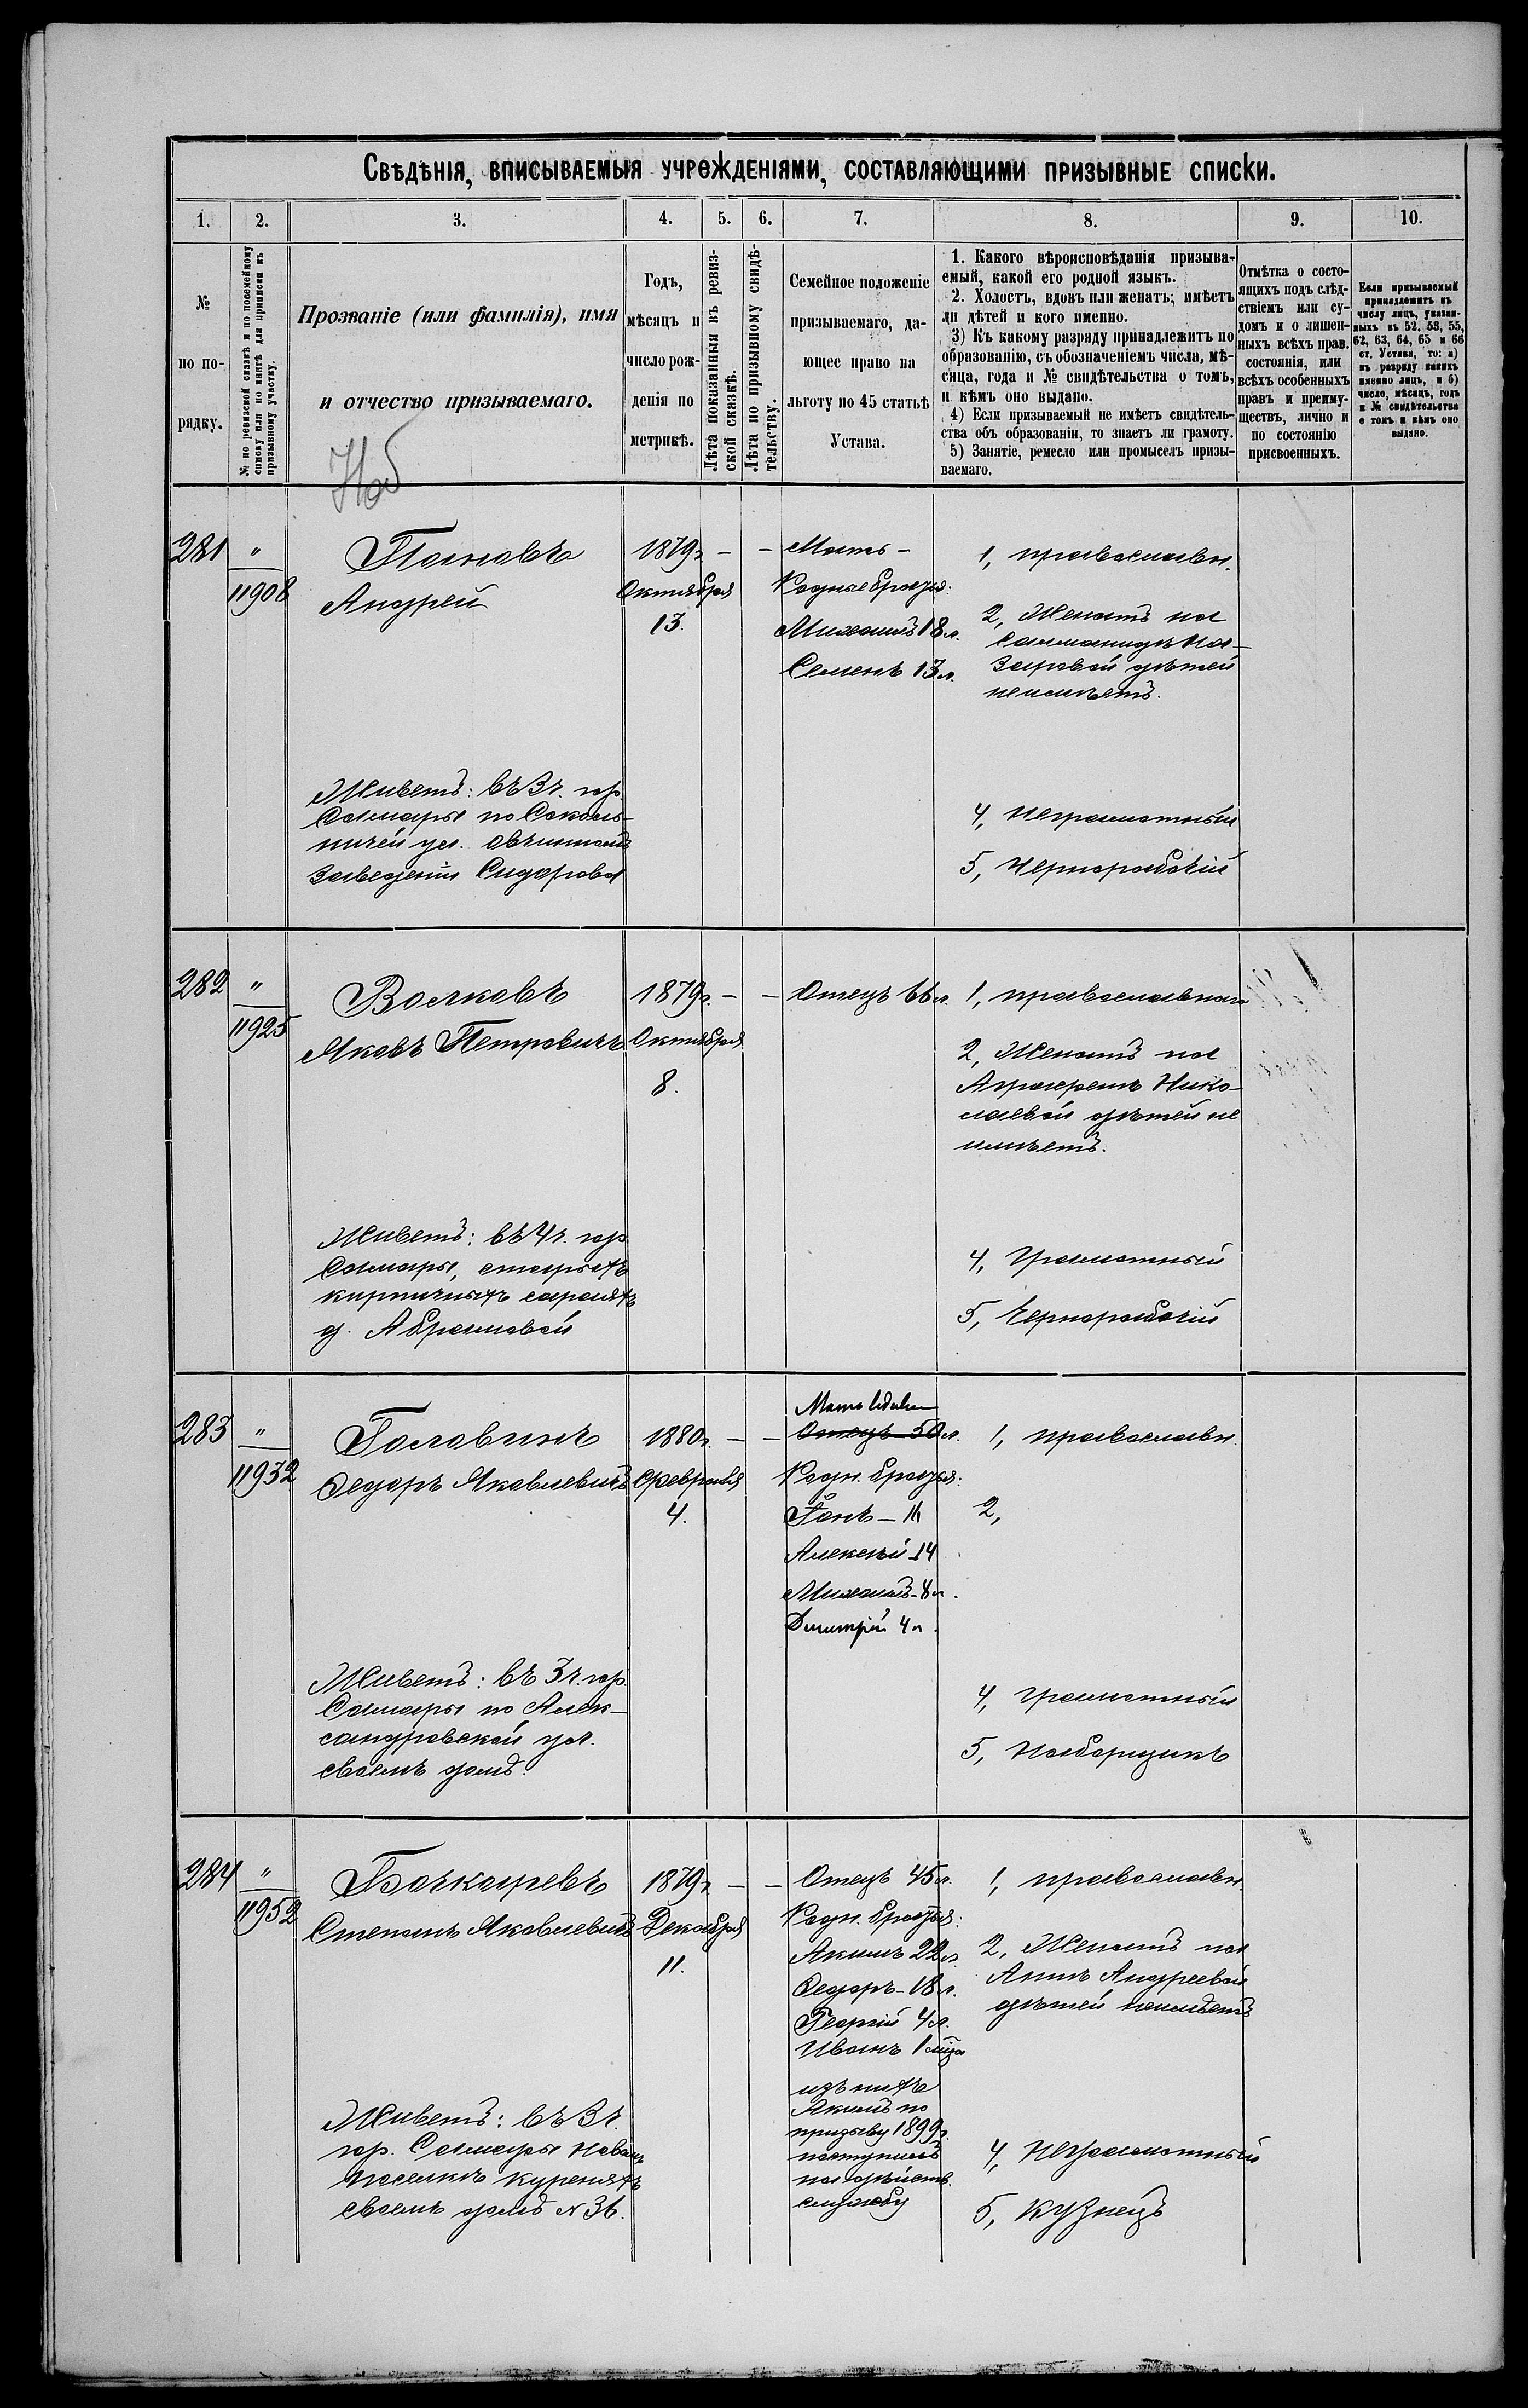 Свѣдѣнія, вписываемыя учрежденіями, составляющими призывные списки.
1. 2. 3. 4. 5. 6. 7. 8. 9. 10.
№
по по-
рядку.
№ по ревизской сказкѣ и по посемейному
списку или по книгѣ для приписки къ
призывному участку.
Прозваніе (или фамилія), имя
и отчество призываемаго.
Годъ,
мѣсяцъ и
число рож-
денія по
метрикѣ.
Лѣта показанныя въ ревиз-
ской сказкѣ.
Лѣта по призывному свидѣ-
тельству.
Семейное положеніе
призываемаго, да-
ющее право на
льготу по 45 статьѣ
Устава.
1. Какого вѣроисповѣданія призыва-
емый, какой его родной языкъ.
2. Холостъ, вдовъ или женатъ; имѣетъ
ли дѣтей и кого именно.
3) Къ какому разряду принадлежитъ по
образованію, съ обозначеніемъ числа, мѣ-
сяца, года и № свидѣтельства о томъ,
и кѣмъ оно выдано.
4) Если призываемый не имѣетъ свидѣтель-
ства объ образованіи, то знаетъ ли грамоту.
5) Занятіе, ремесло или промыселъ призы-
ваемаго.
Отмѣтка о состо-
ящихъ подъ слѣд-
ствіемъ или су-
домъ и о лишен-
ныхъ всѣхъ прав.
состоянія, или
всѣхъ особенныхъ
правъ и преиму-
ществъ, лично и
по состоянію
присвоенныхъ.
Если призываемый
принадлежитъ къ
числу лицъ, указан-
ныхъ въ 52, 53, 55,
62, 63, 64, 65 и 66
ст. Устава, то: а)
къ разряду какихъ
именно лицъ, и б)
число, мѣсяцъ, годъ
и № свидѣтельства
о томъ и кѣмъ оно
выдано.
281 "
11908
Андрей
1879г. — —
Октября
13.
Мать —
Родные братья:
Михаилъ 18 л.
Семенъ 13 л.
1, православн.
2, Женатъ на
Саломанидѣ На-
заровой дѣтей
неимѣетъ.
Живетъ: въ 3 ч. гор.
Самары по Соколь-
ничей ул.
заведеніи Сидорова
4, Неграмотный
5, Чернорабочій
282 "
11925
Волковъ
Яковъ Петровичъ
1879г. — —
Октября
8.
Отецъ 66 л.
1, православнаго
2, Женатъ на
Нико-
лаевой дѣтей не
имѣетъ.
Живетъ: въ 4 ч. гор.
Самары, старыхъ
кирпичныхъ сараяхъ
д. Абрамовой
4, Грамотный
5, Чернорабочій
283 "
11932
Головинъ
Федоръ Яковлевичъ
1880г. — —
Февраля
4.
Мать вдова
Отецъ 50 л.
Родн. братья:
Алексѣй 14
Михаилъ - 8 л.
Димитрій 4 л.
1, православн.
2,
Живетъ: въ 3 ч. гор.
Самары по Алек-
сандровской ул.
своемъ домѣ.
4, Грамотный
5, Наборщикъ
284 "
11952
Бочкаревъ
Степанъ Яковлевичъ
1879г. — —
Декабря
11.
Отецъ 45 л.
Родн. братья:
Акимъ 22 л.
Федоръ - 18 л.
Георгій 4 л.
Иванъ 1 мѣс.
изъ нихъ
Акимъ по
призыву 1899г.
поступилъ
на дѣйств.
службу
1, православн.
2, Женатъ на
Аннѣ Андреевой
дѣтей неимѣетъ
Живетъ: въ 3 ч.
гор. Самары Новомъ
поселкѣ куреняхъ
своемъ домѣ № 36.
4, Неграмотный
5, Кузнецъ